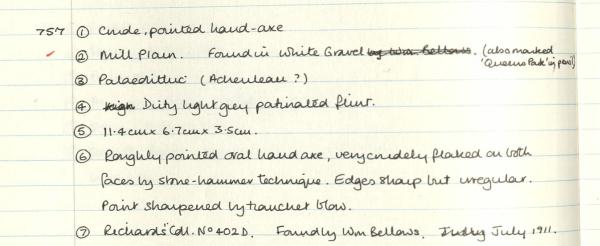 757 ① Crude, pointed hand-axe
② Mill Plain. Found in White Gravel by Wm. Bellows. (also marked 'Queens Park' in pencil)
③ Palaeolithic (Acheulean?)
④ Dirty light grey patinated flint.
⑤ 11.4cm x 6.7cm x 3.5cm.
⑥ Roughly pointed oval hand axe, very crudely flaked on both
faces by stone-hammer technique. Edges sharp but irregular.
Point sharpened by tranchet blow.
⑦ Richards' Coll. No 402D. Found by Wm Bellows. July 1911.